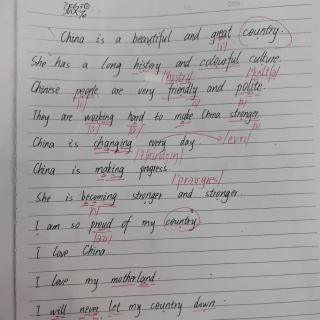 China is a beautiful and great country.
She has a long history and colourful culture.
Chinese people are very friendly and polite.
They are working hard to make China stronger.
China is changing every day.
China is making progress.
She is becoming stronger and stronger.
I am so proud of my country
I love China.
I love my motherland.
I will never let my country down.